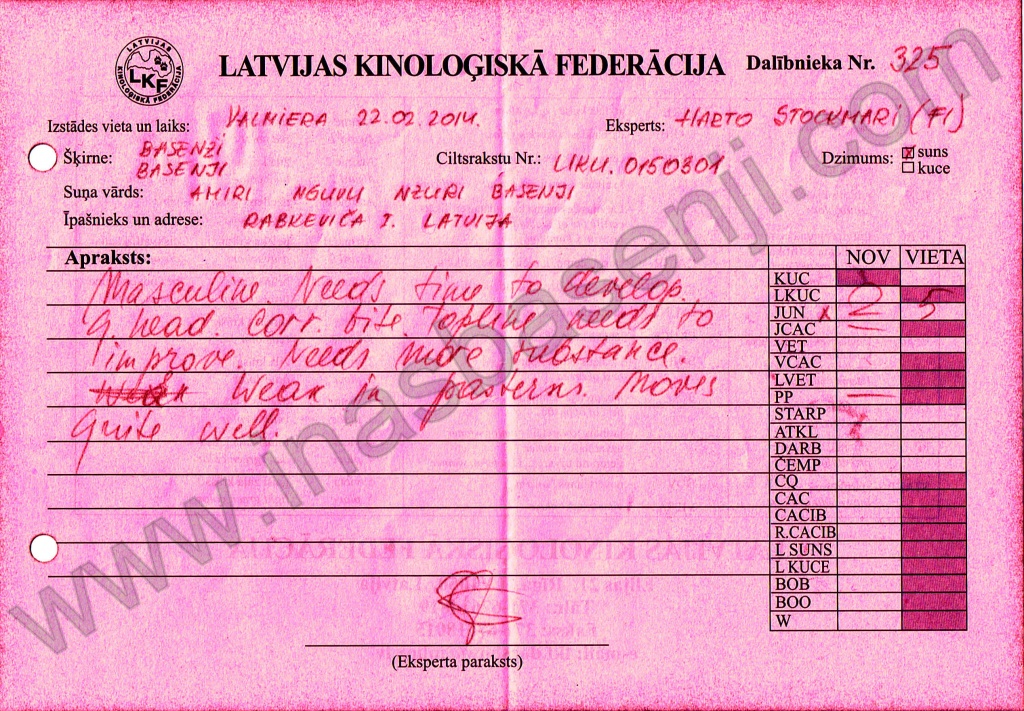 LATVIJAS KINOLOĢISKĀ FEDERĀCIJA
LKF
LATVIJAS KINOLOĢISKĀ FEDERĀCIJA Dalībnieka Nr. 325
Izstādes vieta un laiks: VALMIERA 22.02.2014. Eksperts: HARTO STOCKMARI (FI)
Šķirne: BASENŽI
BASENJI
Ciltsrakstu Nr.: LIKU. 0150301 Dzimums: ☒ suns
☐ kuce
Suņa vārds: AMIRI NGUVU NZURI BASENJI
Īpašnieks un adrese: RABKEVIČA I. LATVIJA
Apraksts: NOV VIETA
Masculine. Needs time to develop.
G. head. Corr. bite. Topline needs to
improve. Needs more substance.
Weak in pasterns. Moves
quite well.
KUC
LKUC
JUN x 2 5
JCAC —
VET
VCAC
LVET
PP —
STARP
ATKL
DARB
ČEMP
CQ
CAC
CACIB
R.CACIB
L SUNS
L KUCE
BOB
BOO
W
(Eksperta paraksts)
www.inasbasenji.com